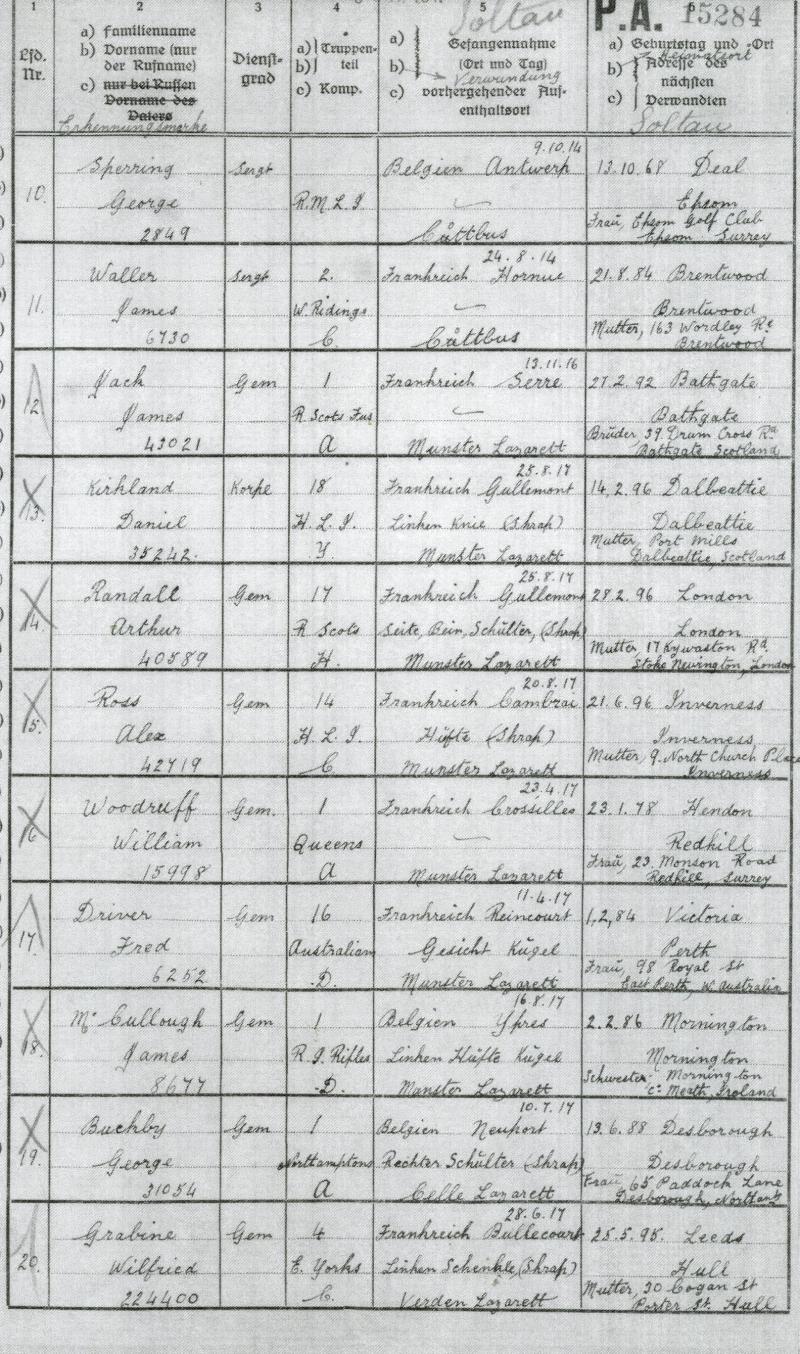 1 2 3 4 5 6
Soltau P.A. 15284
Lfd. Nr.
a) Familienname
b) Vorname (nur der Rufname)
c) nur bei Russen Vorname des Vaters
Erkennungsmarke
Dienst-grad
a) Truppen-
b) teil
c) Komp.
a) Gefangennahme
b) (Ort und Tag)
Verwundung
c) vorhergehender Auf-enthaltsort
a) Geburtstag und -Ort
Heimatsort
b) Adresse des
nächsten
c) Verwandten
Soltau
9.10.14
Sperring Sergt Belgien Antwerp 13.10.68 Deal
10. George R.M.L.I Epsom
Frau, Epsom Golf Club
2849 Cüttbus Epsom Surrey
24.8.14
Waller Sergt 2. Frankreich Hornue 21.8.84 Brentwood
11. James W. Ridings Brentwood
Mutter, 163 Wordley Rd
6730 C. Cüttbus Brentwood
13.11.16
Jack Gem 1 Frankreich Serre 27.2.92 Bathgate
12 James R. Scots Fus Bathgate
Brüder, 39 Drum Cross Rd
43021 A Munster Lazarett Bathgate Scotland
25.8.17
Kirkland Korpe 18 Frankreich Gullemont 14.2.96 Dalbeattie
13. Daniel H.L.I. Linken Knie (Shrap) Dalbeattie
Mutter, Port Mills
35242. Y. Munster Lazarett Dalbeattie, Scotland
25.8.17
Randall Gem 17 Frankreich Gullemont 28.2.96 London
14. Arthur R Scots Seite, Bein, Schülter, (Shrap) London
Mutter, 17 Kywaston Rd.
40589 H. Munster Lazarett Stoke Newington, London
20.8.17
Ross Gem 14 Frankreich Cambrai 21.6.96 Inverness
15. Alex H.L.I. Hüfte (Shrap) Inverness
Mutter, 9. North Church Place
42719 C. Munster Lazarett Inverness
23.4.17
Woodruff Gem. 1 Frankreich Crossilles 23.1.78 Hendon
16 William Queens Redhill
Frau, 23. Monson Road
15998 A Munster Lazarett Redhill, Surrey
11.4.17
Driver Gem 16 Frankreich Reincourt 1,2,84 Victoria
17. Fred Australian Gesicht Kügel Perth
Frau, 98 Royal St
6252 D. Munster Lazarett East Perth, W Australia
16.8.17
Mc Cullough Gem 1 Belgien Ypres 2.2.86 Mornington
18. James R.I. Rifles Linken Hüfte Kügel Mornington
Schwester Mornington
8677 D. Munster Lazarett Co Meath, Ireland
10.7.17
Buckby Gem 1 Belgien Neuport 13.6.88 Desborough
19. George Northamptons Rechter Schülter (Shrap) Desborough
Frau, 65 Paddock Lane
31054 A Celle Lazarett Desborough, Northants
28.6.17
Grabine Gem 4 Frankreich Bullecourt 25.5.95. Leeds
20. Wilfried E. Yorks Linken Schenkle, (Shrap) Hull
Mutter, 30 Cogan St
224400 C. Verden Lazarett Porter St. Hull